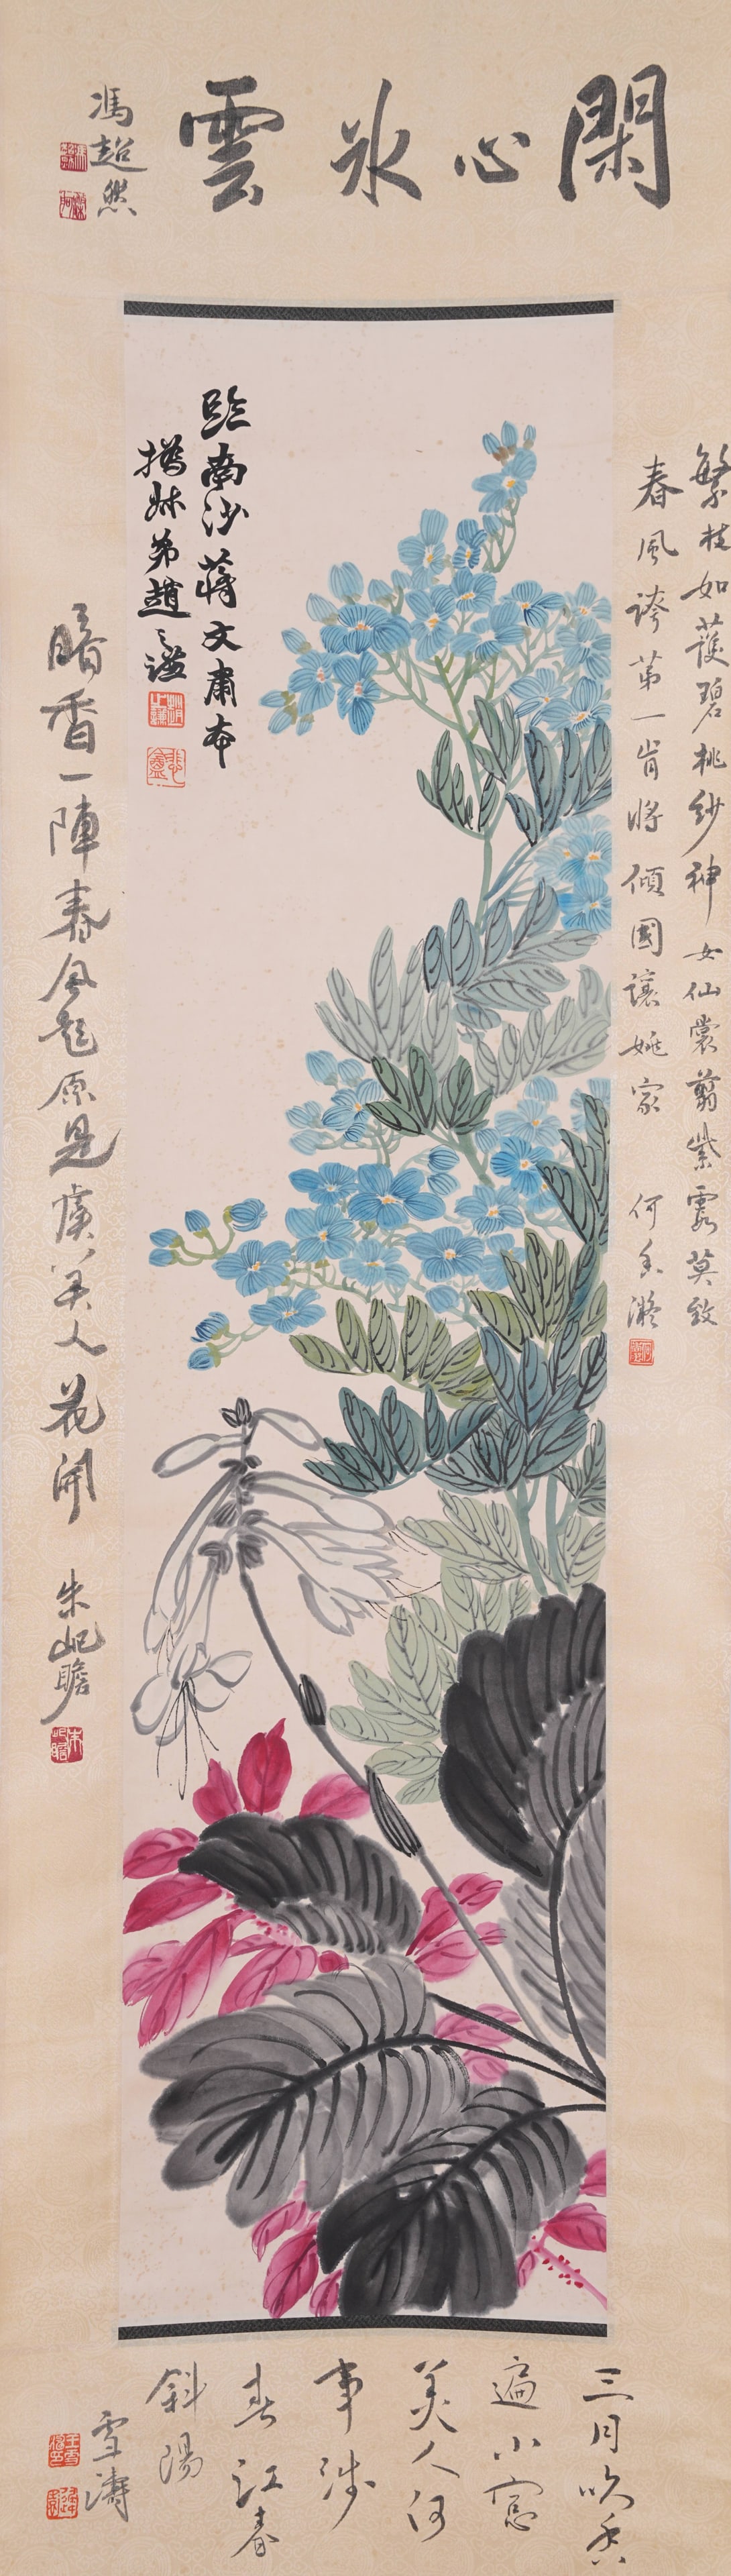 閑心冰雲
馮超然
臨南沙蔣文肅本
撝叔弟趙之謙
繁枝如護碧桃紗神女仙裳翦紫霞莫致
春風誇第一肯將傾國讓姚家
何香凝
暗香一陣春風起原是虞美人花開
朱屺瞻
三月吹香
遍小窗
美人何
事涉
春江春
斜陽
雪濤